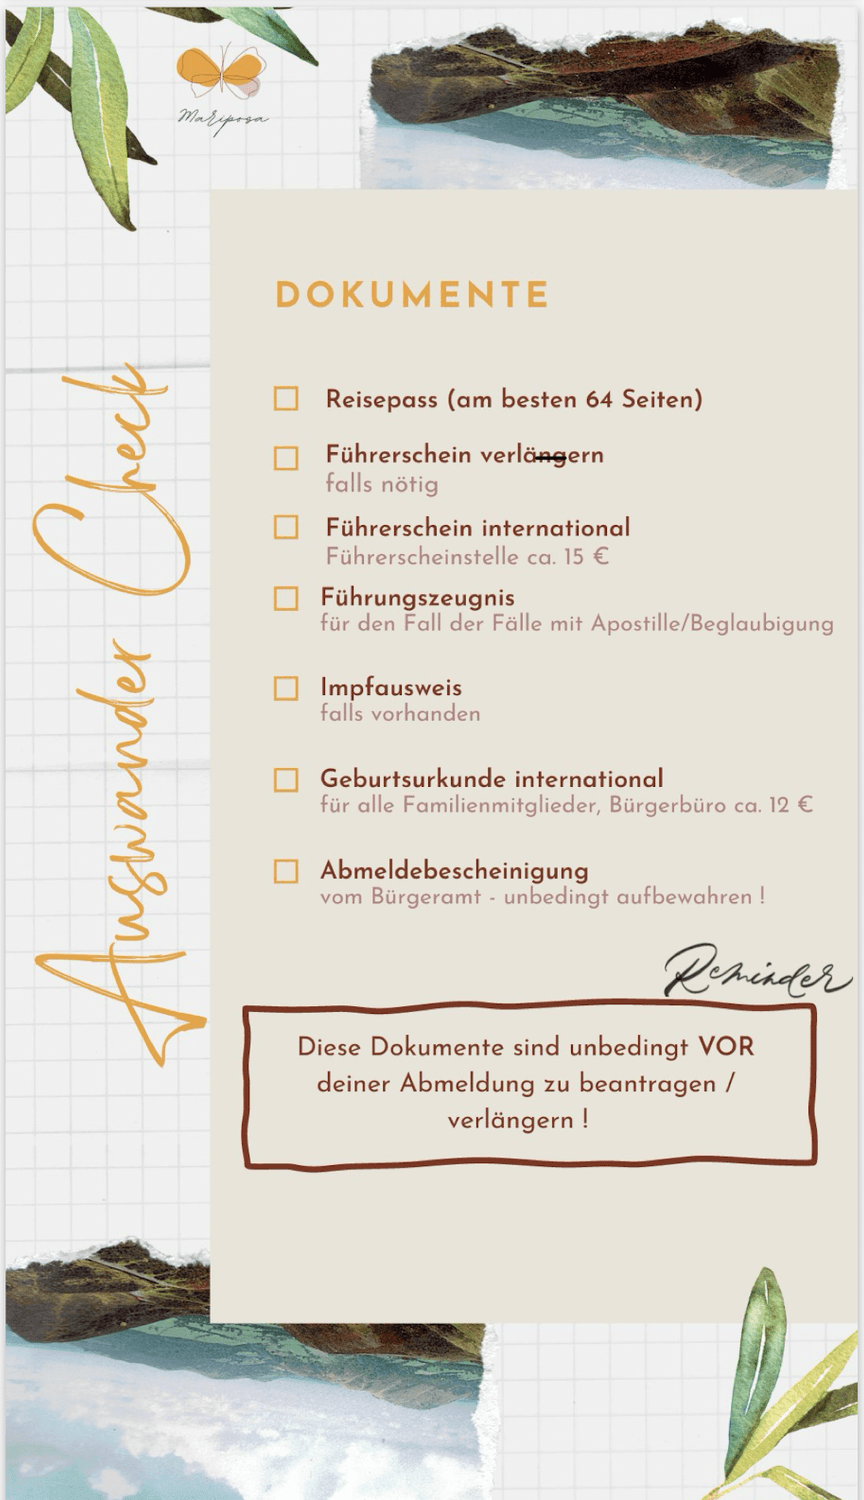 Mariposa
DOKUMENTE
Auswander Check
Reisepass (am besten 64 Seiten)
Führerschein verlängern
falls nötig
Führerschein international
Führerscheinstelle ca. 15 €
Führungszeugnis
für den Fall der Fälle mit Apostille/Beglaubigung
Impfausweis
falls vorhanden
Geburtsurkunde international
für alle Familienmitglieder, Bürgerbüro ca. 12 €
Abmeldebescheinigung
vom Bürgeramt - unbedingt aufbewahren !
Reminder
Diese Dokumente sind unbedingt VOR
deiner Abmeldung zu beantragen /
verlängern !